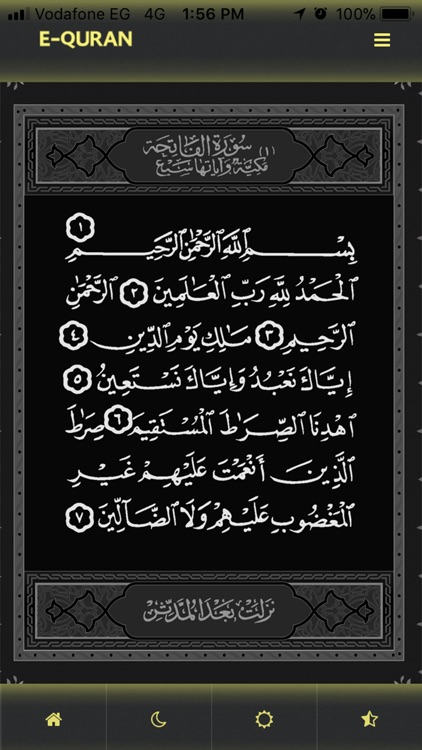 Vodafone EG 4G 1:56 PM 100%
E-QURAN
سُورَةُ الفَاتِحَة (١)
مَكِّيَّة وَآيَاتُهَا سَبْع
بِسْمِ ٱللَّهِ ٱلرَّحْمَٰنِ ٱلرَّحِيمِ ١
ٱلْحَمْدُ لِلَّهِ رَبِّ ٱلْعَٰلَمِينَ ٢ ٱلرَّحْمَٰنِ
ٱلرَّحِيمِ ٣ مَٰلِكِ يَوْمِ ٱلدِّينِ ٤
إِيَّاكَ نَعْبُدُ وَإِيَّاكَ نَسْتَعِينُ ٥
ٱهْدِنَا ٱلصِّرَٰطَ ٱلْمُسْتَقِيمَ ٦ صِرَٰطَ
ٱلَّذِينَ أَنْعَمْتَ عَلَيْهِمْ غَيْرِ
ٱلْمَغْضُوبِ عَلَيْهِمْ وَلَا ٱلضَّآلِّينَ ٧
نَزَلَتْ بَعْدَ المُدَّثِّر